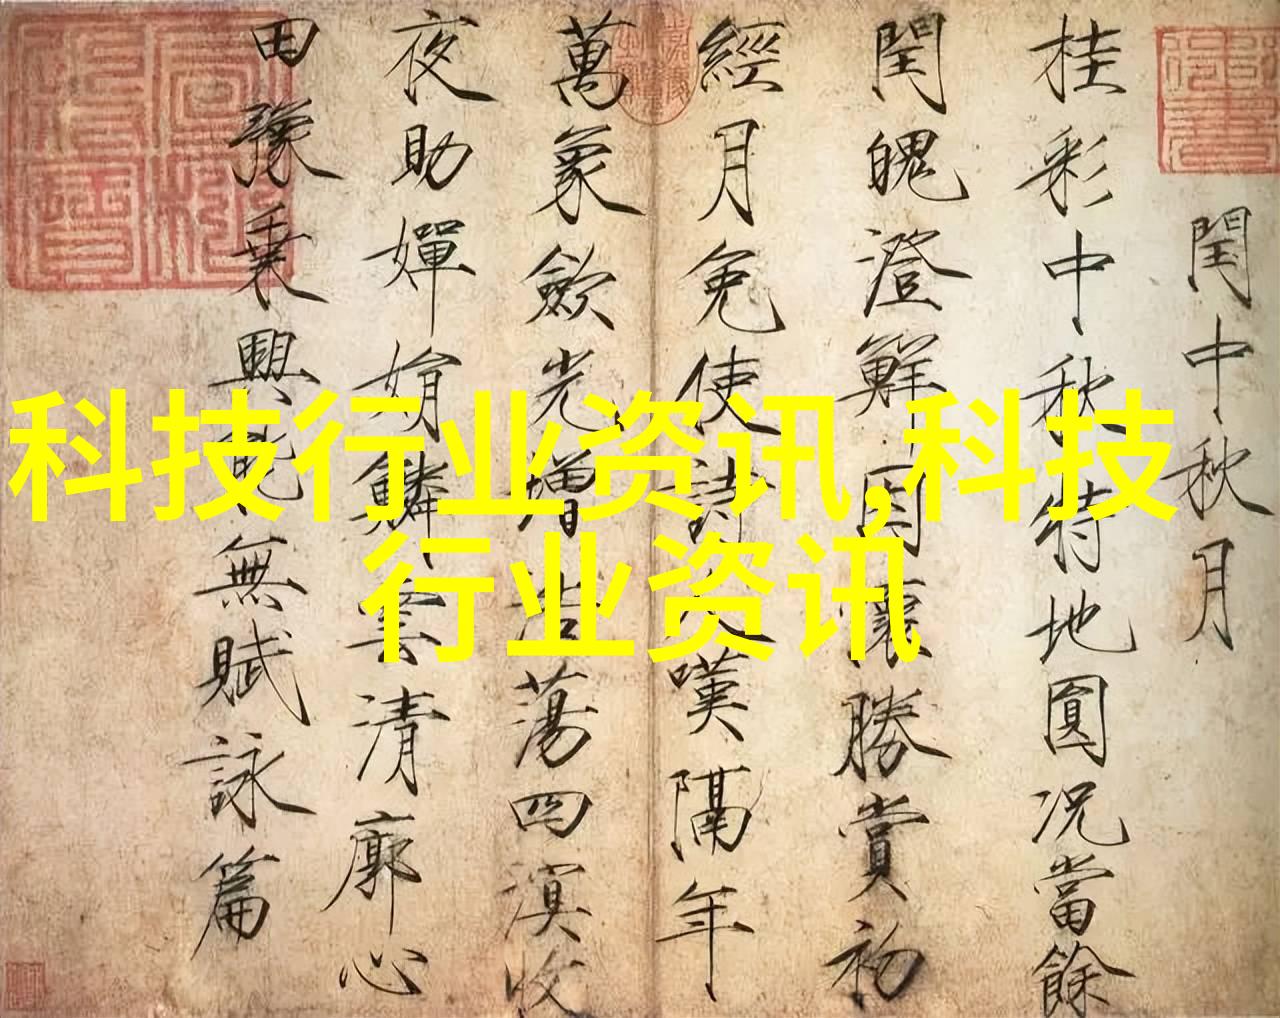 閏中秋月
桂彩中秋特地圓况當餘
閏魄澄鮮因懷勝賞初
經月免使詩人嘆隔年
萬象歛光增浩蕩四溟收
夜助嬋娟鱗雲清廓心
田豫乗興能無賦詠篇
科技行业资讯,科技
行业资讯